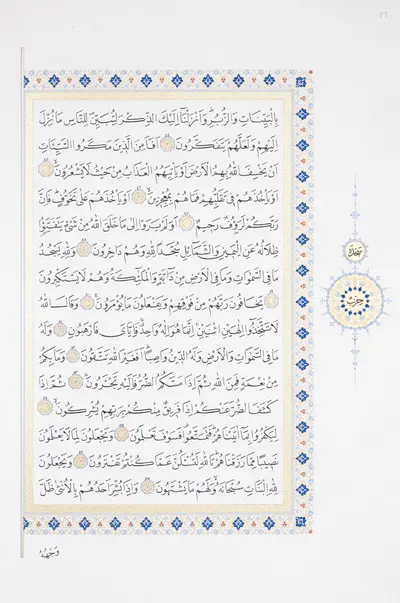 بِالْبَيِّنَاتِ وَالزُّبُرِ وَاَنْزَلْنَٓا اِلَيْكَ الذِّكْرَ لِتُبَيِّنَ لِلنَّاسِ مَا نُزِّلَ
اِلَيْهِمْ وَلَعَلَّهُمْ يَتَفَكَّرُونَ اَفَاَمِنَ الَّذِينَ مَكَرُوا السَّيِّئَاتِ
اَنْ يَخْسِفَ اللهُ بِهِمُ الْاَرْضَ اَوْ يَاْتِيَهُمُ الْعَذَابُ مِنْ حَيْثُ لَا يَشْعُرُونَ
اَوْ يَاْخُذَهُمْ فِي تَقَلُّبِهِمْ فَمَا هُمْ بِمُعْجِزِينَ اَوْ يَاْخُذَهُمْ عَلٰى تَخَوُّفٍ فَاِنَّ
رَبَّكُمْ لَرَؤُفٌ رَحِيمٌ اَوَلَمْ يَرَوْا اِلٰى مَا خَلَقَ اللهُ مِنْ شَيْءٍ يَتَفَيَّؤُا
ظِلَالُهُ عَنِ الْيَمِينِ وَالشَّمَٓائِلِ سُجَّدًا لِلهِ وَهُمْ دَاخِرُونَ وَلِلهِ يَسْجُدُ
مَا فِي السَّمٰوَاتِ وَمَا فِي الْاَرْضِ مِنْ دَٓابَّةٍ وَالْمَلٰٓئِكَةُ وَهُمْ لَا يَسْتَكْبِرُونَ
يَخَافُونَ رَبَّهُمْ مِنْ فَوْقِهِمْ وَيَفْعَلُونَ مَا يُؤْمَرُونَ وَقَالَ اللهُ
لَا تَتَّخِذُٓوا اِلٰهَيْنِ اثْنَيْنِ اِنَّمَا هُوَ اِلٰهٌ وَاحِدٌ فَاِيَّايَ فَارْهَبُونِ وَلَهُ
مَا فِي السَّمٰوَاتِ وَالْاَرْضِ وَلَهُ الدِّينُ وَاصِبًا اَفَغَيْرَ اللهِ تَتَّقُونَ وَمَا بِكُمْ
مِنْ نِعْمَةٍ فَمِنَ اللهِ ثُمَّ اِذَا مَسَّكُمُ الضُّرُّ فَاِلَيْهِ تَجْـَٔرُونَ ثُمَّ اِذَا
كَشَفَ الضُّرَّ عَنْكُمْ اِذَا فَرِيقٌ مِنْكُمْ بِرَبِّهِمْ يُشْرِكُونَ
لِيَكْفُرُوا بِمَٓا اٰتَيْنَاهُمْ فَتَمَتَّعُوا فَسَوْفَ تَعْلَمُونَ وَيَجْعَلُونَ لِمَا لَا يَعْلَمُونَ
نَصِيبًا مِمَّا رَزَقْنَاهُمْ تَاللهِ لَتُسْـَٔلُنَّ عَمَّا كُنْتُمْ تَفْتَرُونَ وَيَجْعَلُونَ
لِلهِ الْبَنَاتِ سُبْحَانَهُ وَلَهُمْ مَا يَشْتَهُونَ وَاِذَا بُشِّرَ اَحَدُهُمْ بِالْاُنْثٰى ظَلَّ
سجده
حزب
وَجْهُهُ